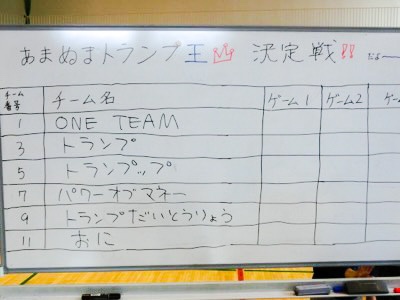 あまぬまトランプ王 決定戦!! だよ〜
チーム番号 チーム名 ゲーム1 ゲーム2 ゲー
1 ONE TEAM
3 トランプ
5 トランプップ
7 パワーオブマネー
9 トランプだいとうりょう
11 おに